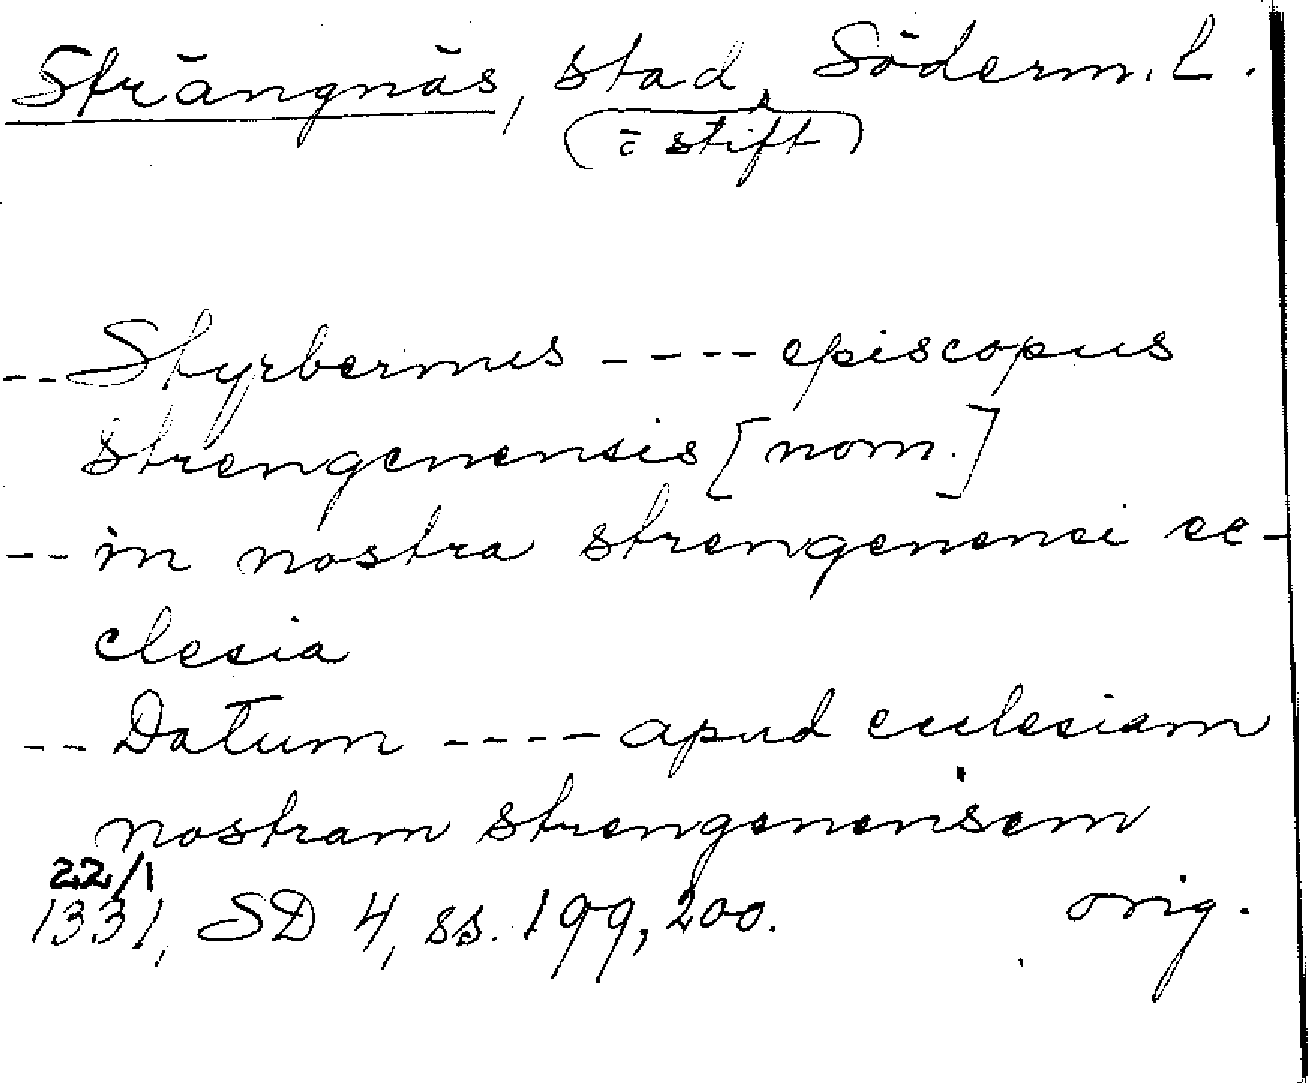 Strängnäs, stad, Söderm. L.
(= stift)
-- Styrbernus ---- episcopus
strengenensis [nom.]
-- in nostra strengenensi ec-
clesia
-- Datum ---- apud ecclesiam
nostram strengenensem
22/1
1331, SD 4, ss. 199, 200. orig.